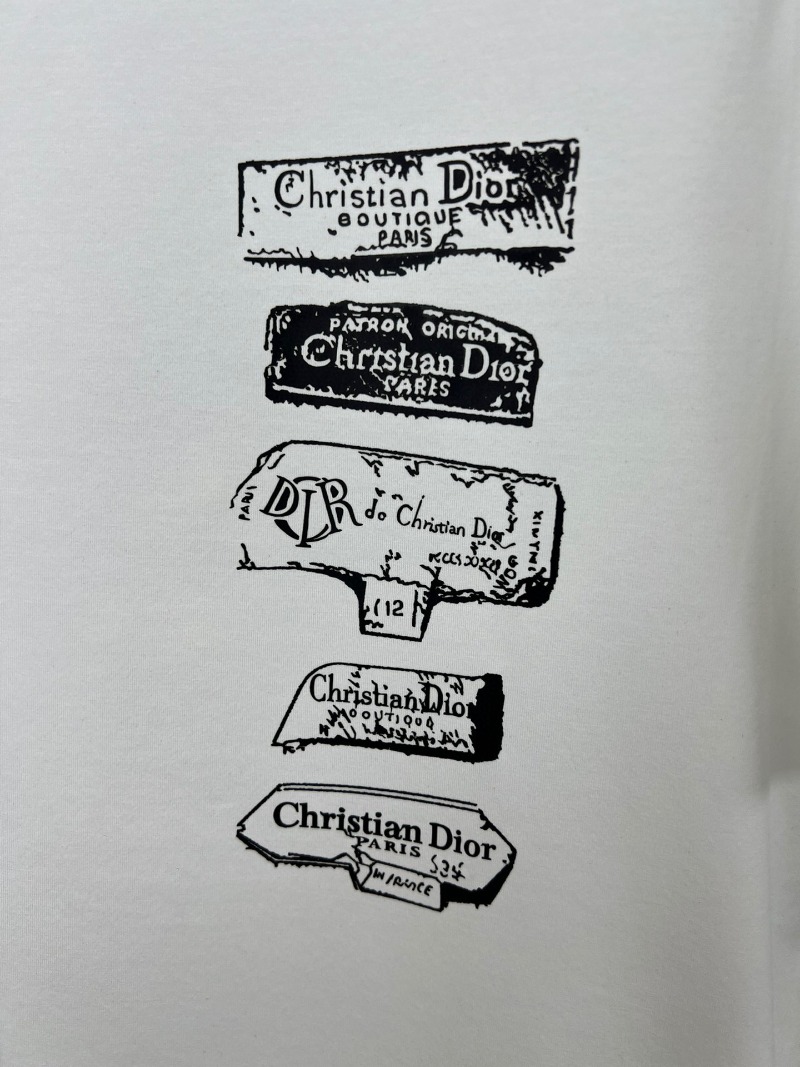 Christian Dior
BOUTIQUE
PARIS
PATRON ORIGINA
Christian Dior
PARIS
PARIS
DIR do Christian Dior
(12
Christian Dior
BOUTIQUE
Christian Dior
PARIS